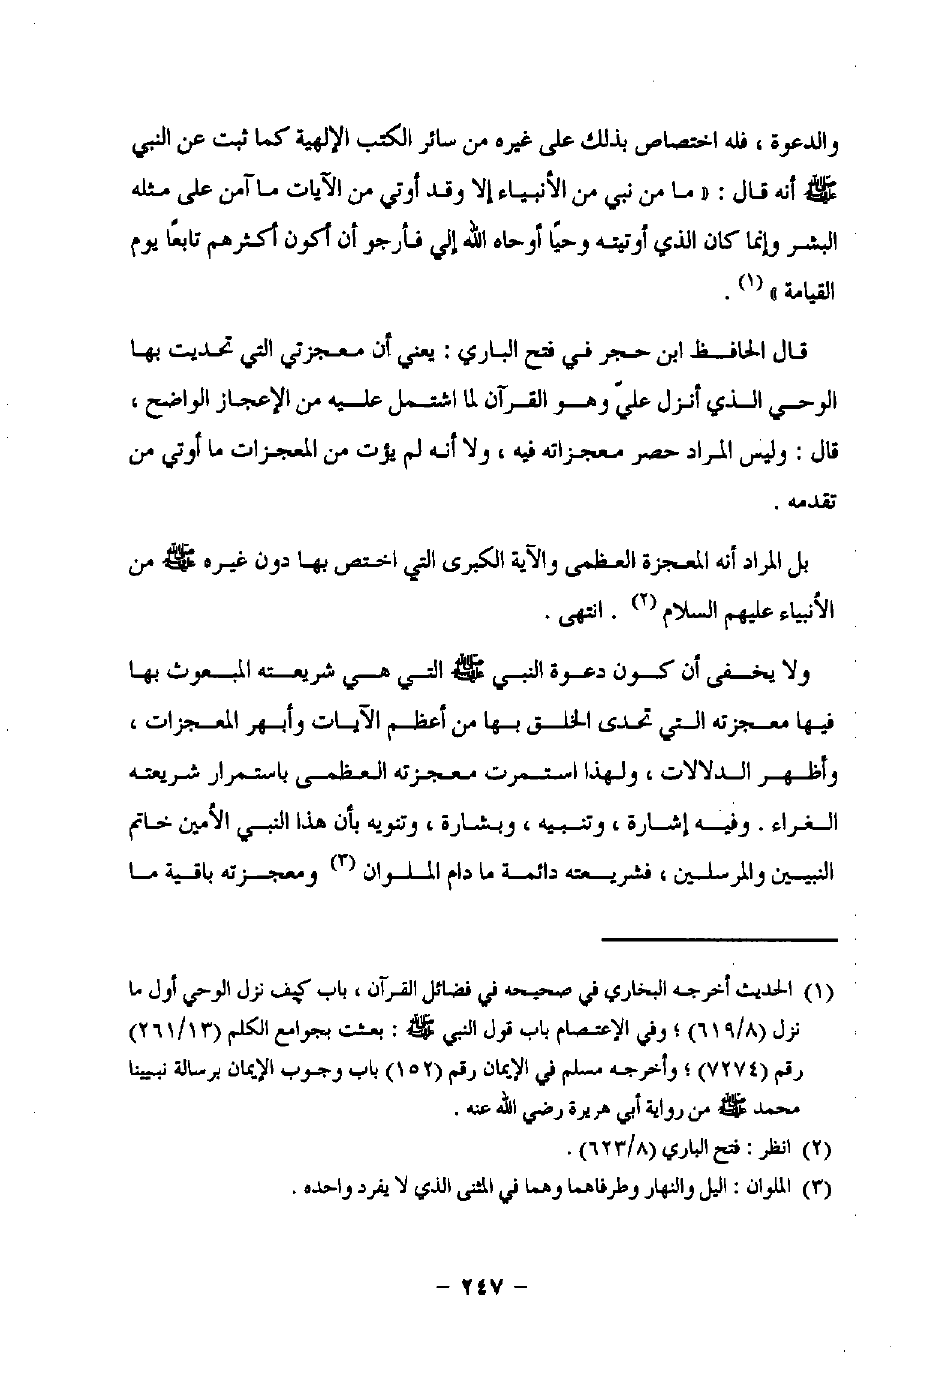 والدعوة ، فله اختصاص بذلك على غيره من سائر الكتب الإلهية كما ثبت عن النبي
ﷺ أنه قال : « ما من نبي من الأنبياء إلا وقد أوتي من الآيات ما آمن على مثله
البشر وإنما كان الذي أوتيته وحيًا أوحاه الله إلي فأرجو أن أكون أكثرهم تابعًا يوم
القيامة » (١) .
قال الحافظ ابن حجر في فتح الباري : يعني أن معجزتي التي تحديت بها
الوحي الذي أنزل عليّ وهو القرآن لما اشتمل عليه من الإعجاز الواضح ،
قال : وليس المراد حصر معجزاته فيه ، ولا أنه لم يؤت من المعجزات ما أوتي من
تقدمه .
بل المراد أنه المعجزة العظمى والآية الكبرى التي اختص بها دون غيره ﷺ من
الأنبياء عليهم السلام (٢) . انتهى .
ولا يخفى أن كون دعوة النبي ﷺ التي هي شريعته المبعوث بها
فيها معجزته التي تحدى الخلق بها من أعظم الآيات وأبهر المعجزات ،
وأظهر الدلالات ، ولهذا استمرت معجزته العظمى باستمرار شريعته
الغراء . وفيه إشارة ، وتنبيه ، وبشارة ، وتنويه بأن هذا النبي الأمين خاتم
النبيين والمرسلين ، فشريعته دائمة ما دام الملوان (٣) ومعجزته باقية ما
(١) الحديث أخرجه البخاري في صحيحه في فضائل القرآن ، باب كيف نزل الوحي أول ما
نزل (٦١٩/٨) ؛ وفي الإعتصام باب قول النبي ﷺ : بعثت بجوامع الكلم (٢٦١/١٣)
رقم (٧٢٧٤) ؛ وأخرجه مسلم في الإيمان رقم (١٥٢) باب وجوب الإيمان برسالة نبينا
محمد ﷺ من رواية أبي هريرة رضي الله عنه .
(٢) انظر : فتح الباري (٦٢٣/٨) .
(٣) الملوان : اليل والنهار وطرفاهما وهما في المثنى الذي لا يفرد واحده .
– ٢٤٧ –